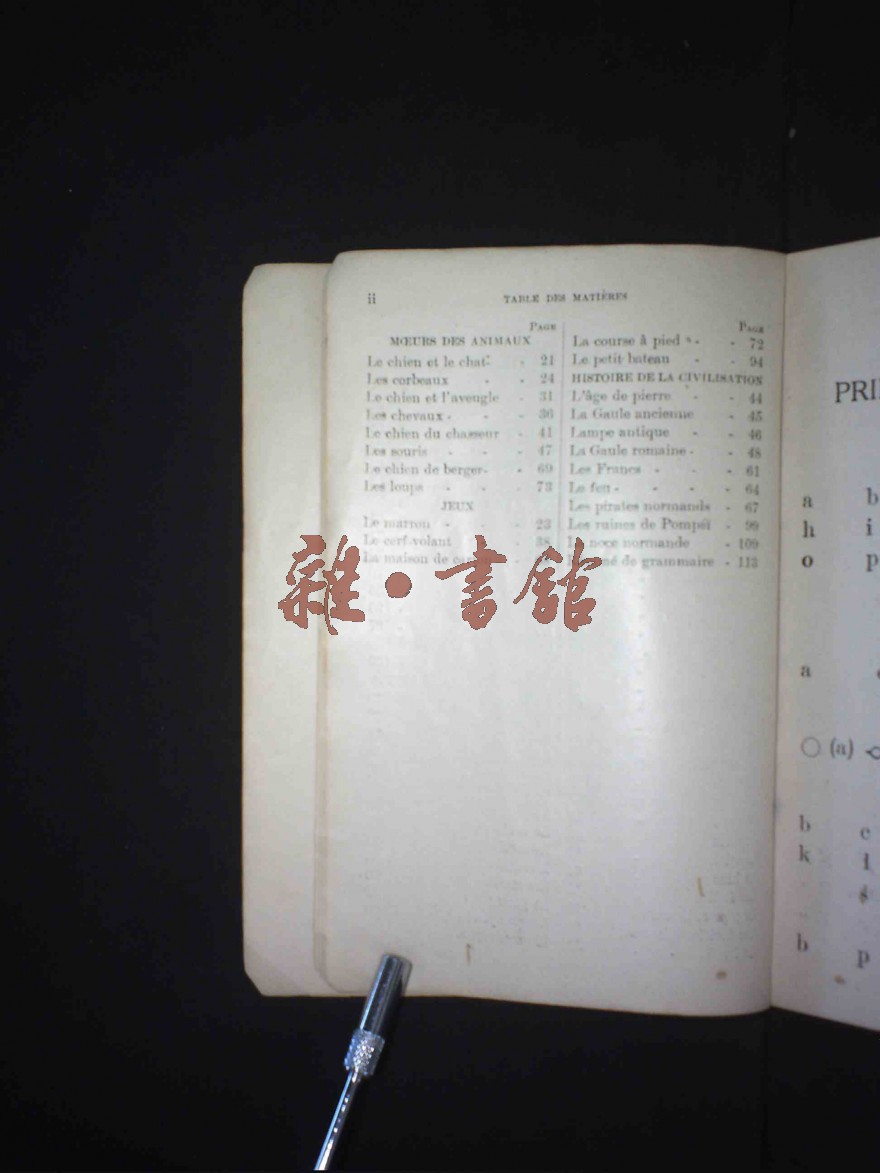 ii
TABLE DES MATIÈRES
PAGE
MŒURS DES ANIMAUX
Le chien et le chat - 21
Les corbeaux - - 24
Le chien et l'aveugle - 31
Les chevaux - - - 36
Le chien du chasseur - 41
Les souris - - - 47
Le chien de berger - - 69
Les loups - - - 73
JEUX
Le marron - - - 23
Le cerf-volant - 38
La maison de
PAGE
La course à pied - - 72
Le petit bateau - - 94
HISTOIRE DE LA CIVILISATION
L'âge de pierre - - 44
La Gaule ancienne - 45
Lampe antique - - 46
La Gaule romaine - - 48
Les Francs - - - 61
Le feu - - - - 64
Les pirates normands - 67
Les ruines de Pompéi - 99
La noce normande - 109
de grammaire - 113
雜·書館
PRI
a b
h i
o p
a
(a)
b c
k l
b p